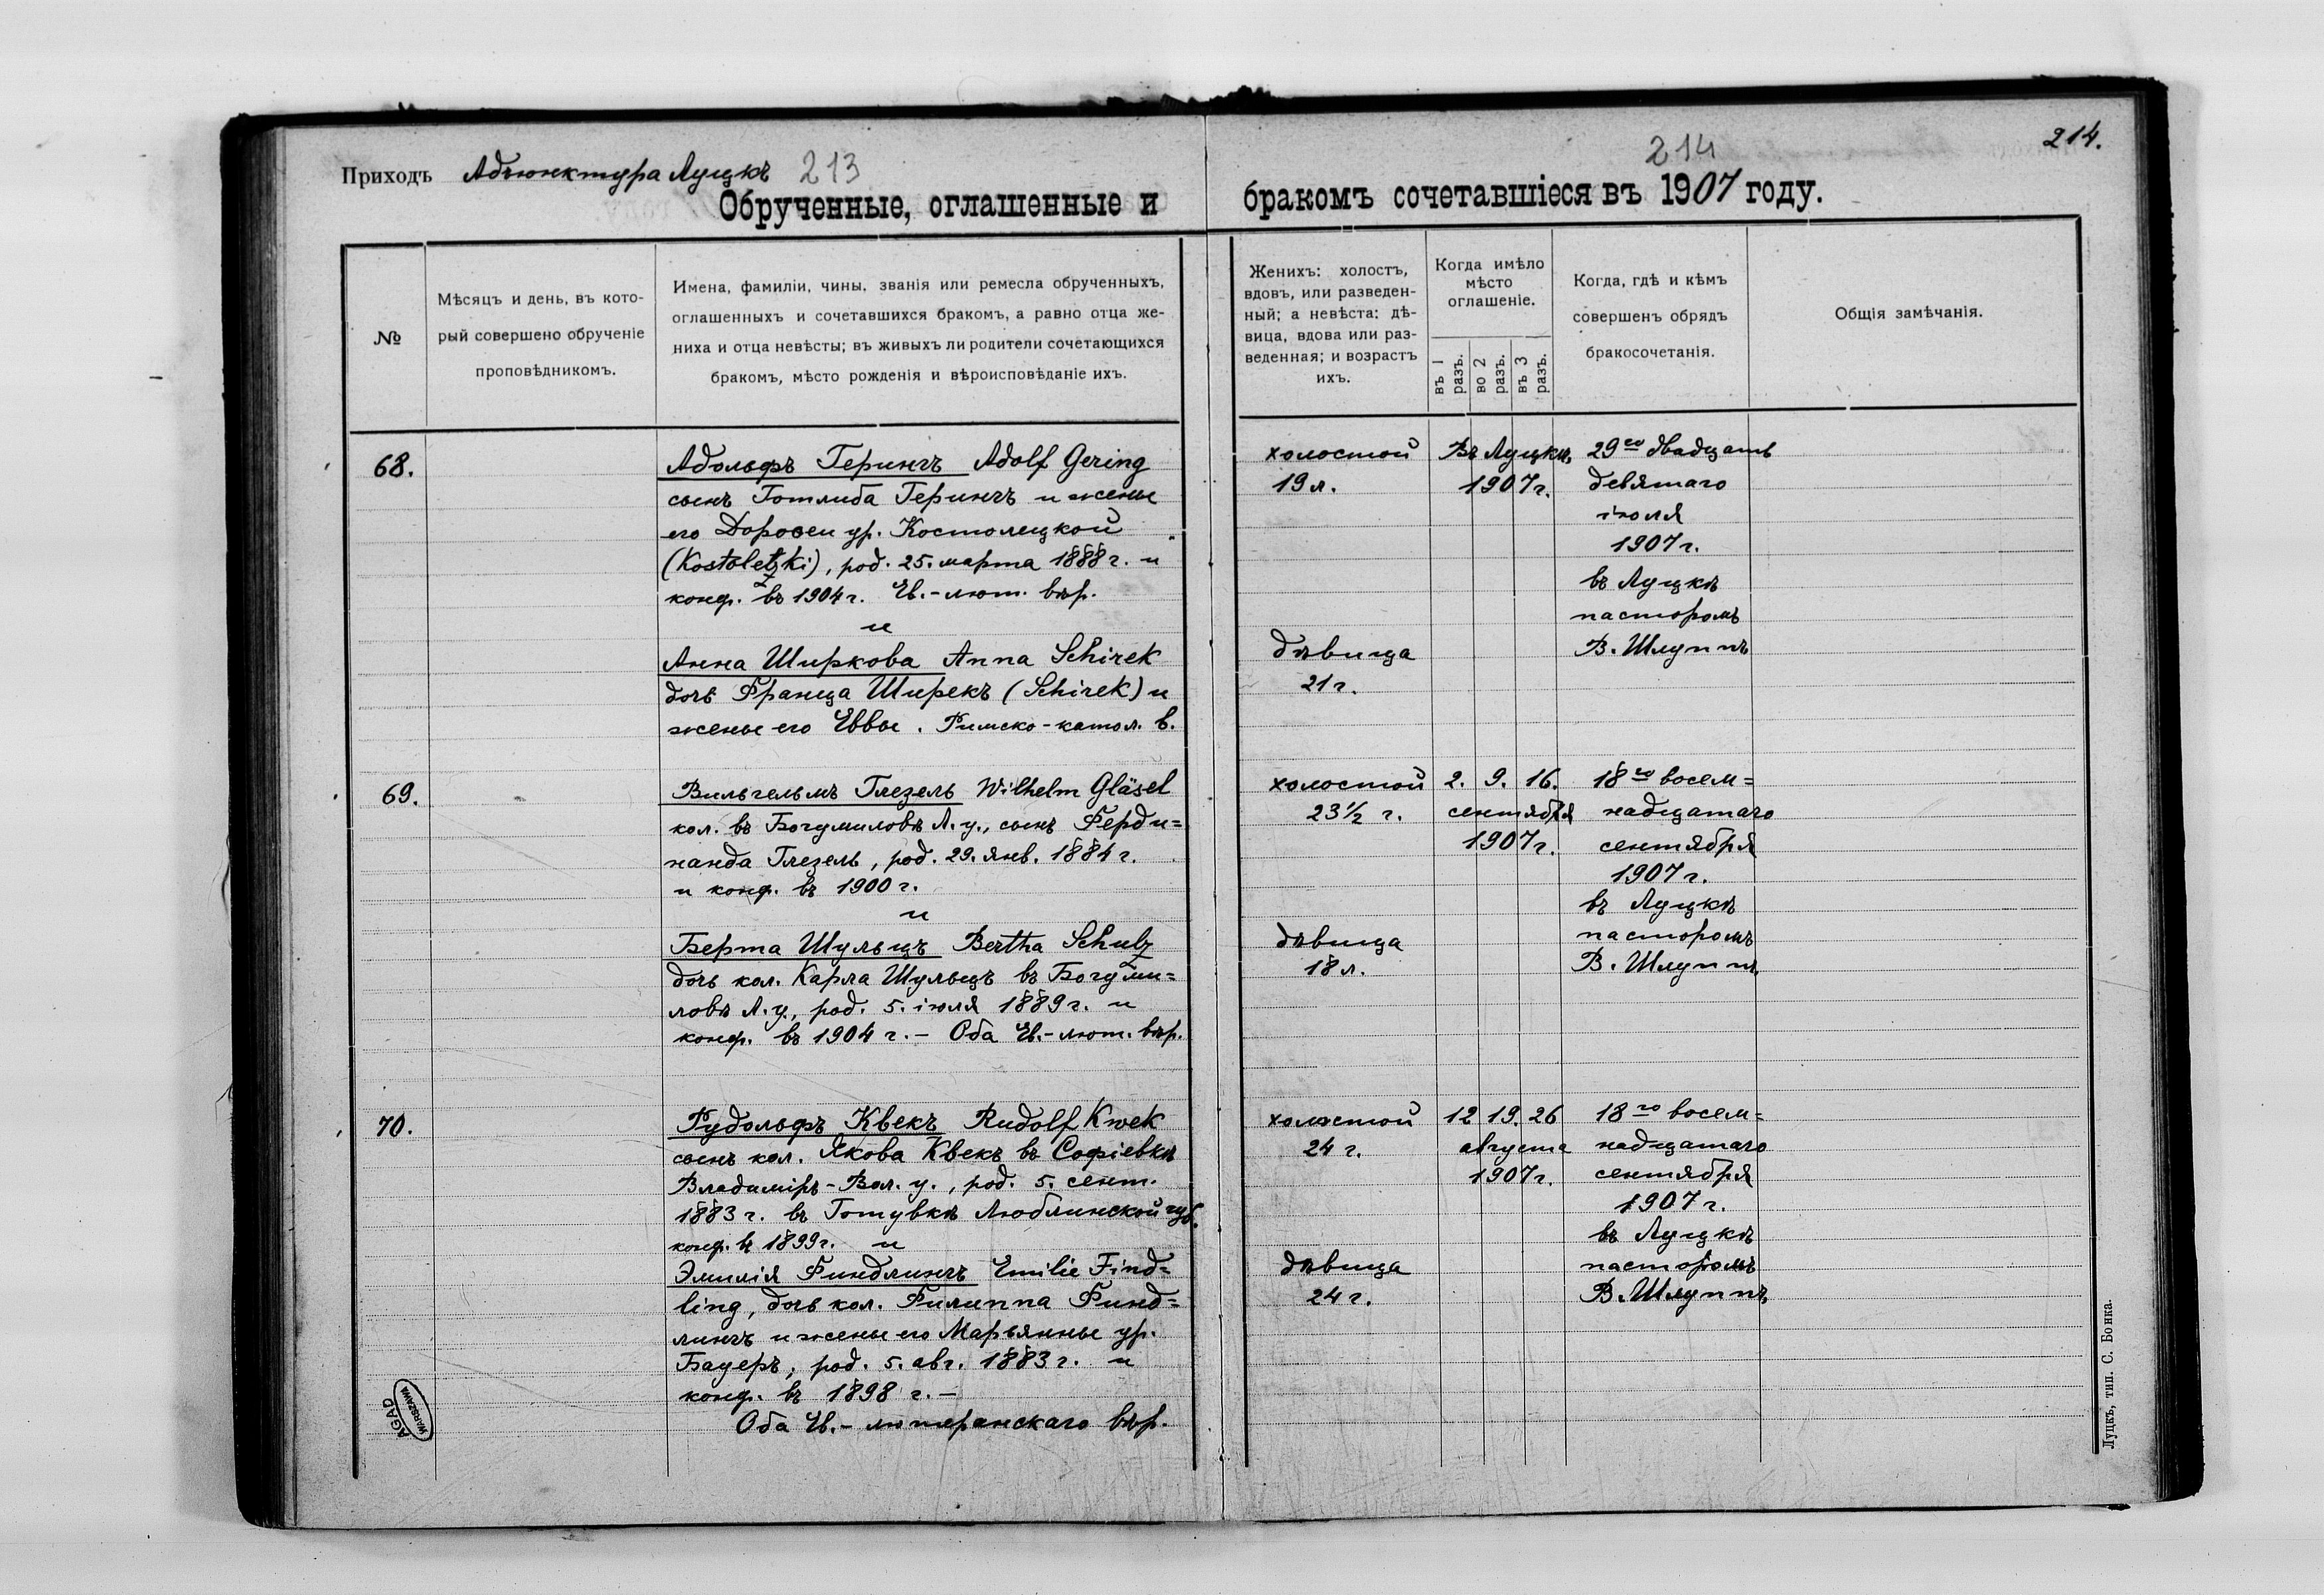 Приходъ Адъюнктура Луцкъ 213
214
214.
Обрученные, оглашенные и бракомъ сочетавшіеся въ 1907 году.
№
Мѣсяцъ и день, въ кото-
рый совершено обрученіе
проповѣдникомъ.
Имена, фамиліи, чины, званія или ремесла обрученныхъ,
оглашенныхъ и сочетавшихся бракомъ, а равно отца же-
ниха и отца невѣсты; въ живыхъ ли родители сочетающихся
бракомъ, мѣсто рожденія и вѣроисповѣданіе ихъ.
Женихъ: холостъ,
вдовъ, или разведен-
ный; а невѣста: дѣ-
вица, вдова или раз-
веденная; и возрастъ
ихъ.
Когда имѣло
мѣсто
оглашеніе.
въ 1 разъ.
во 2 разъ.
въ 3 разъ.
Когда, гдѣ и кѣмъ
совершенъ обрядъ
бракосочетанія.
Общія замѣчанія.
68.
Адольфъ Герингъ Adolf Gering
сынъ Готлиба Герингъ и жены
его Доровеи ур. Костолецкой
(Kostoletzki), род. 25. марта 1888 г. и
конф. въ 1904 г. Ев.-лют. вѣр.
и
Анна Ширкова Anna Schirek
дочь Франца Ширекъ (Schirek) и
жены его Еввы. Римско-катол. в.
холостой
19 л.
дѣвица
21 г.
Въ Луцкѣ
1907 г.
29го двадцать
девятаго
іюля
1907 г.
въ Луцкѣ
пасторомъ
В. Шлуппъ
69.
Вильгельмъ Глезель Wilhelm Gläsel
кол. въ Богумиловѣ Л. у., сынъ Ферди=
нанда Глезель, род. 29. янв. 1884 г.
и конф. въ 1900 г.
и
Берта Шульцъ Bertha Schulz
дочь кол. Карла Шульцъ въ Богуми=
ловѣ Л. у., род. 5. іюля 1889 г. и
конф. въ 1904 г. – Оба Ев.-лют. вѣр.
холостой
23 1/2 г.
дѣвица
18 л.
2. 9. 16.
сентября
1907 г.
18го восем=
надцатаго
сентября
1907 г.
въ Луцкѣ
пасторомъ
В. Шлуппъ
70.
Рудольфъ Квекъ Rudolf Kwek
сынъ кол. Якова Квекъ въ Софіевкѣ
Владиміръ-Вол. у., род. 5. сент.
1883 г. въ Готувкѣ Люблинской губ.
конф. въ 1899 г. и
Эмилія Финдлингъ Emilie Find=
ling, дочь кол. Филиппа Финд=
лингъ и жены его Марьянны ур.
Бауеръ, род. 5. авг. 1883 г. и
конф. въ 1898 г. –
Оба Ев.-лютеранскаго вѣр.
холостой
24 г.
дѣвица
24 г.
12 19. 26
августа
1907 г.
18го восем=
надцатаго
сентября
1907 г.
въ Луцкѣ
пасторомъ
В. Шлуппъ
AGAD
WARSZAWA
Луцкъ, тип. С. Бонка.